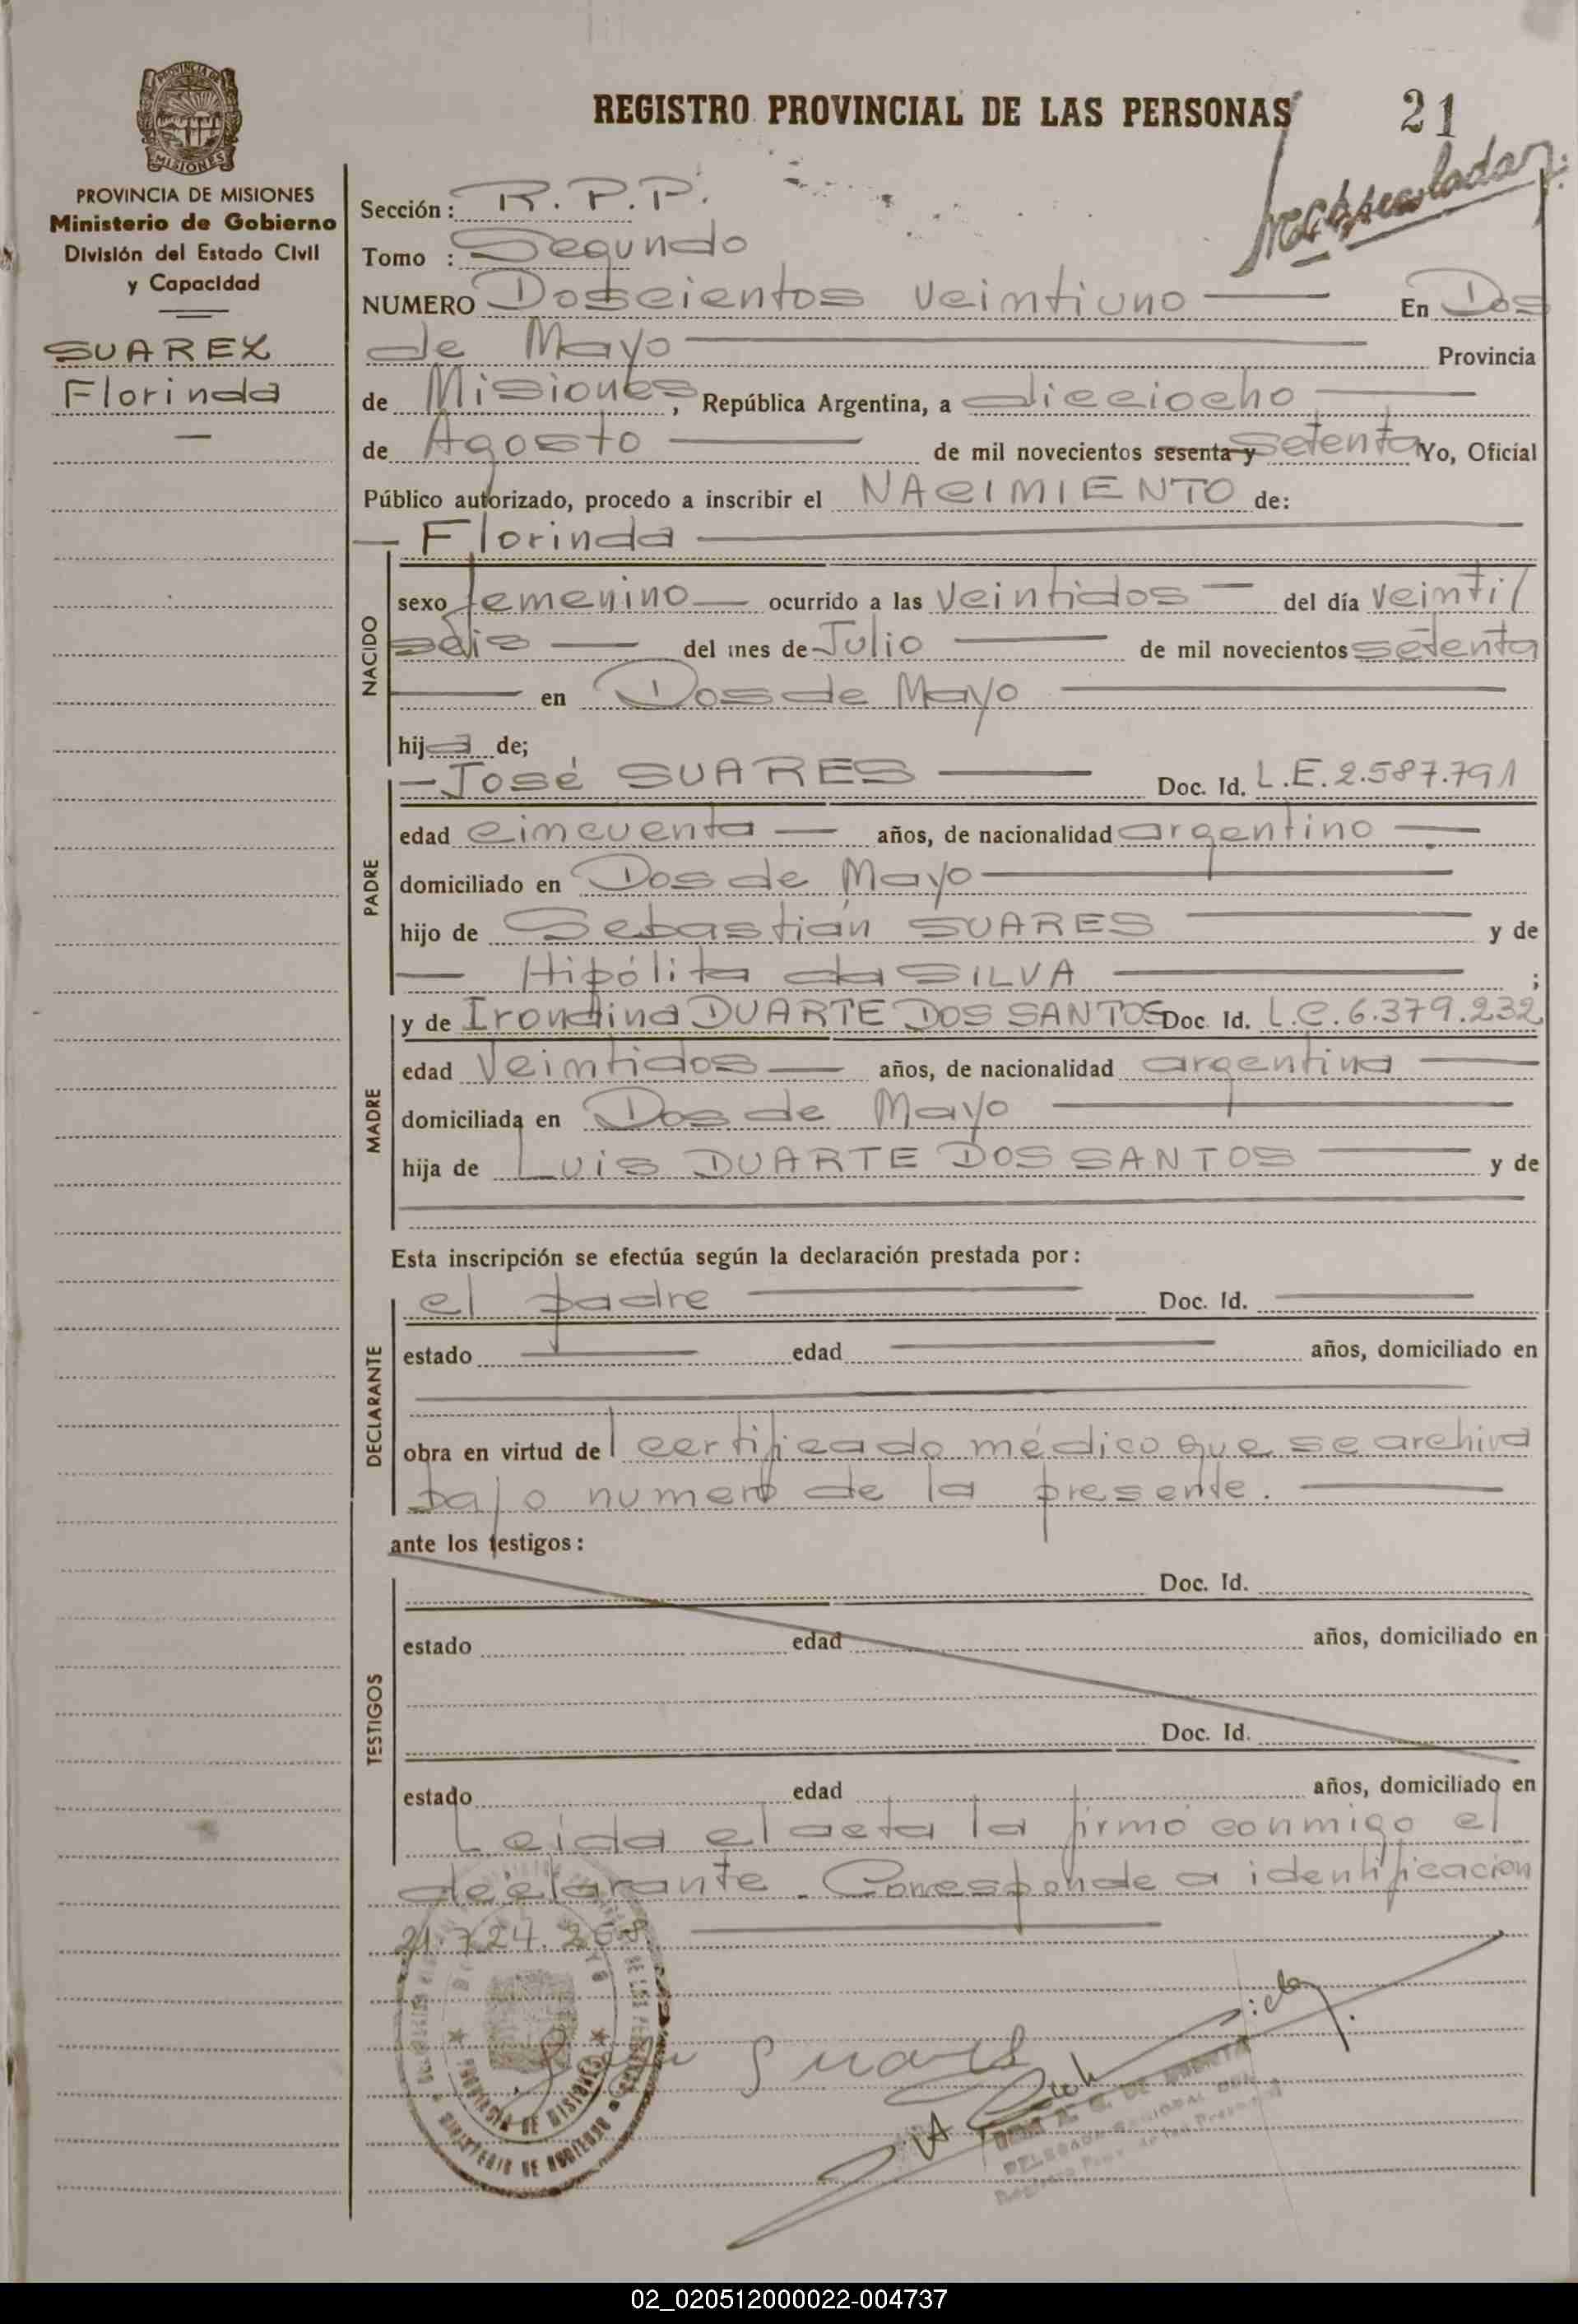 REGISTRO PROVINCIAL DE LAS PERSONAS 21
PROVINCIA DE MISIONES
PROVINCIA DE MISIONES
Ministerio de Gobierno
División del Estado Civil
y Capacidad
SUAREZ
Florinda
Sección: R.P.P.
Tomo : Segundo
NUMERO Doscientos veintiuno En Dos
de Mayo Provincia
de Misiones, República Argentina, a dieciocho
de Agosto de mil novecientos sesenta y setenta Yo, Oficial
Público autorizado, procedo a inscribir el NACIMIENTO de:
Florinda
NACIDO
sexo femenino ocurrido a las veintidos del día veinti
seis del mes de Julio de mil novecientos setenta
en Dos de Mayo
hija de;
PADRE
José SUARES Doc. Id. L.E. 2.587.791
edad cincuenta años, de nacionalidad argentino
domiciliado en Dos de Mayo
hijo de Sebastián SUARES y de
Hipólita da SILVA ;
MADRE
y de Irondina DUARTE DOS SANTOS Doc. Id. L.C. 6.379.232
edad Veintidos años, de nacionalidad argentina
domiciliada en Dos de Mayo
hija de Luis DUARTE DOS SANTOS y de
Esta inscripción se efectúa según la declaración prestada por:
DECLARANTE
el padre Doc. Id.
estado edad años, domiciliado en
obra en virtud del certificado médico que se archiva
bajo numero de la presente.
ante los testigos:
TESTIGOS
Doc. Id.
estado edad años, domiciliado en
Doc. Id.
estado edad años, domiciliado en
Leida el acta la firmó conmigo el
declarante. Corresponde a identificación
21.724.268.
PROVINCIA DE MISIONES
MINISTERIO DE GOBIERNO
02_020512000022-004737